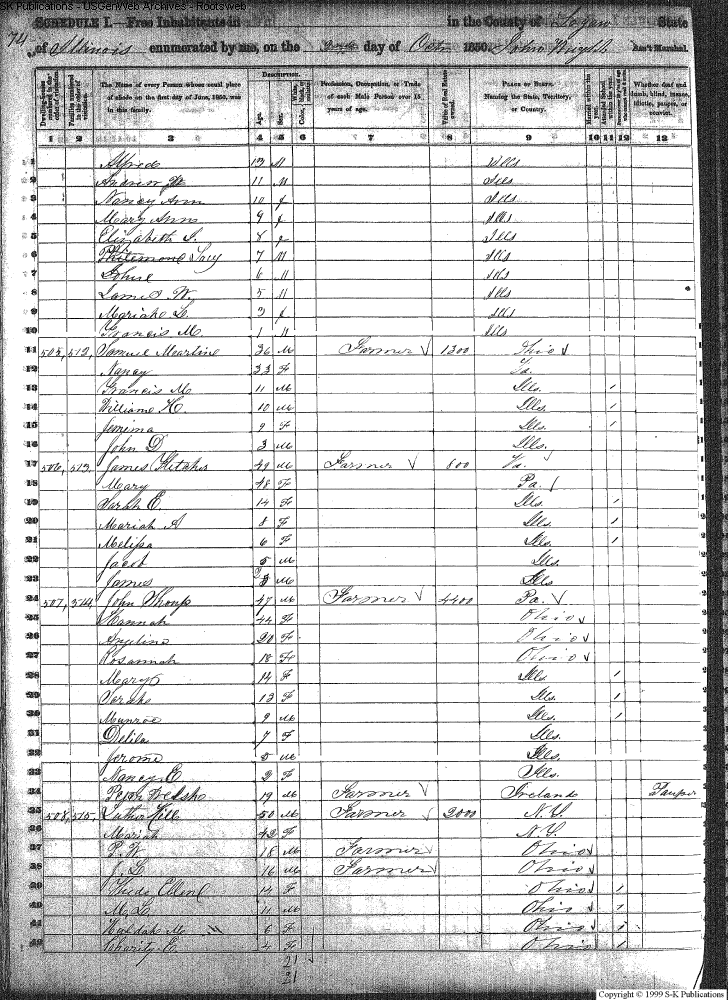 SK Publications - USGenWeb Archives - Rootsweb
SCHEDULE I.—Free Inhabitants in in the County of Logan State
74 of Illinois enumerated by me, on the day of Octr 1850. John Wright Ass't Marshal.
Dwelling-houses numbered in the order of visitation.
Families numbered in the order of visitation.
The Name of every Person whose usual place of abode on the first day of June, 1850, was in this family.
DESCRIPTION.
Age.
Sex.
Color, White, black, or mulatto.
Profession, Occupation, or Trade of each Male Person over 15 years of age.
Value of Real Estate owned.
PLACE OF BIRTH. Naming the State, Territory, or Country.
Whether deaf and dumb, blind, insane, idiotic, pauper, or convict.
1 2 3 4 5 6 7 8 9 10 11 12 13
1 Alfred 13 M Ills
2 Andrew 11 M Ills
3 Nancy Ann 10 f Ills
4 Mary Ann 9 f Ills
5 Elizabeth S. 8 f Ills
6 7 M Ills
7 6 Ills
8 James W. 5 Ills
9 Mariah L. 3 f Ills
10 Francis M. 1 Ills
11 505, 512, Samuel Mearline 36 M Farmer √ 1300 Ohio √
12 Nancy 33 F Va.
13 Francis M 11 M Ills. /
14 William H. 10 M Ills. /
15 Jemima 9 F Ills. /
16 John D 3 M Ills.
17 506, 513, James 49 M Farmer √ 800 Va.
18 Mary 48 F Pa. /
19 Sarah E. 14 F Ills. /
20 Mariah A 8 F Ills. /
21 Melissa 6 F Ills. /
22 Jacob 5 M Ills.
23 James 3 M Ills
24 507, 514 John Shoup 47 M Farmer √ 4400 Pa. √
25 Hannah 44 F Ohio √
26 Angeline 20 F Ohio √
27 Rosannah 18 F Ohio √
28 Mary 14 F Ills /
29 Sarah 13 F Ills. /
30 Munroe 9 M Ills. /
31 Delila 7 F Ills.
32 Jerome 5 M Ills.
33 Nancy E. 2 F Ills.
34 Peter Welsh 19 M Farmer √ Ireland Pauper
35 508, 515, Luther Hill 50 M Farmer √ 2000 N.Y.
36 Mariah 42 F N.Y.
37 P. W. 18 M Farmer √ Ohio √
38 J. L. 16 M Farmer √ Ohio √
39 Ellen 14 F Ohio √ /
40 M. L. 11 M Ohio √ /
41 Huldah M 〃 6 F Ohio √ /
42 Charity E. 4 F Ohio /
21
21
Copyright © 1999 S-K Publications